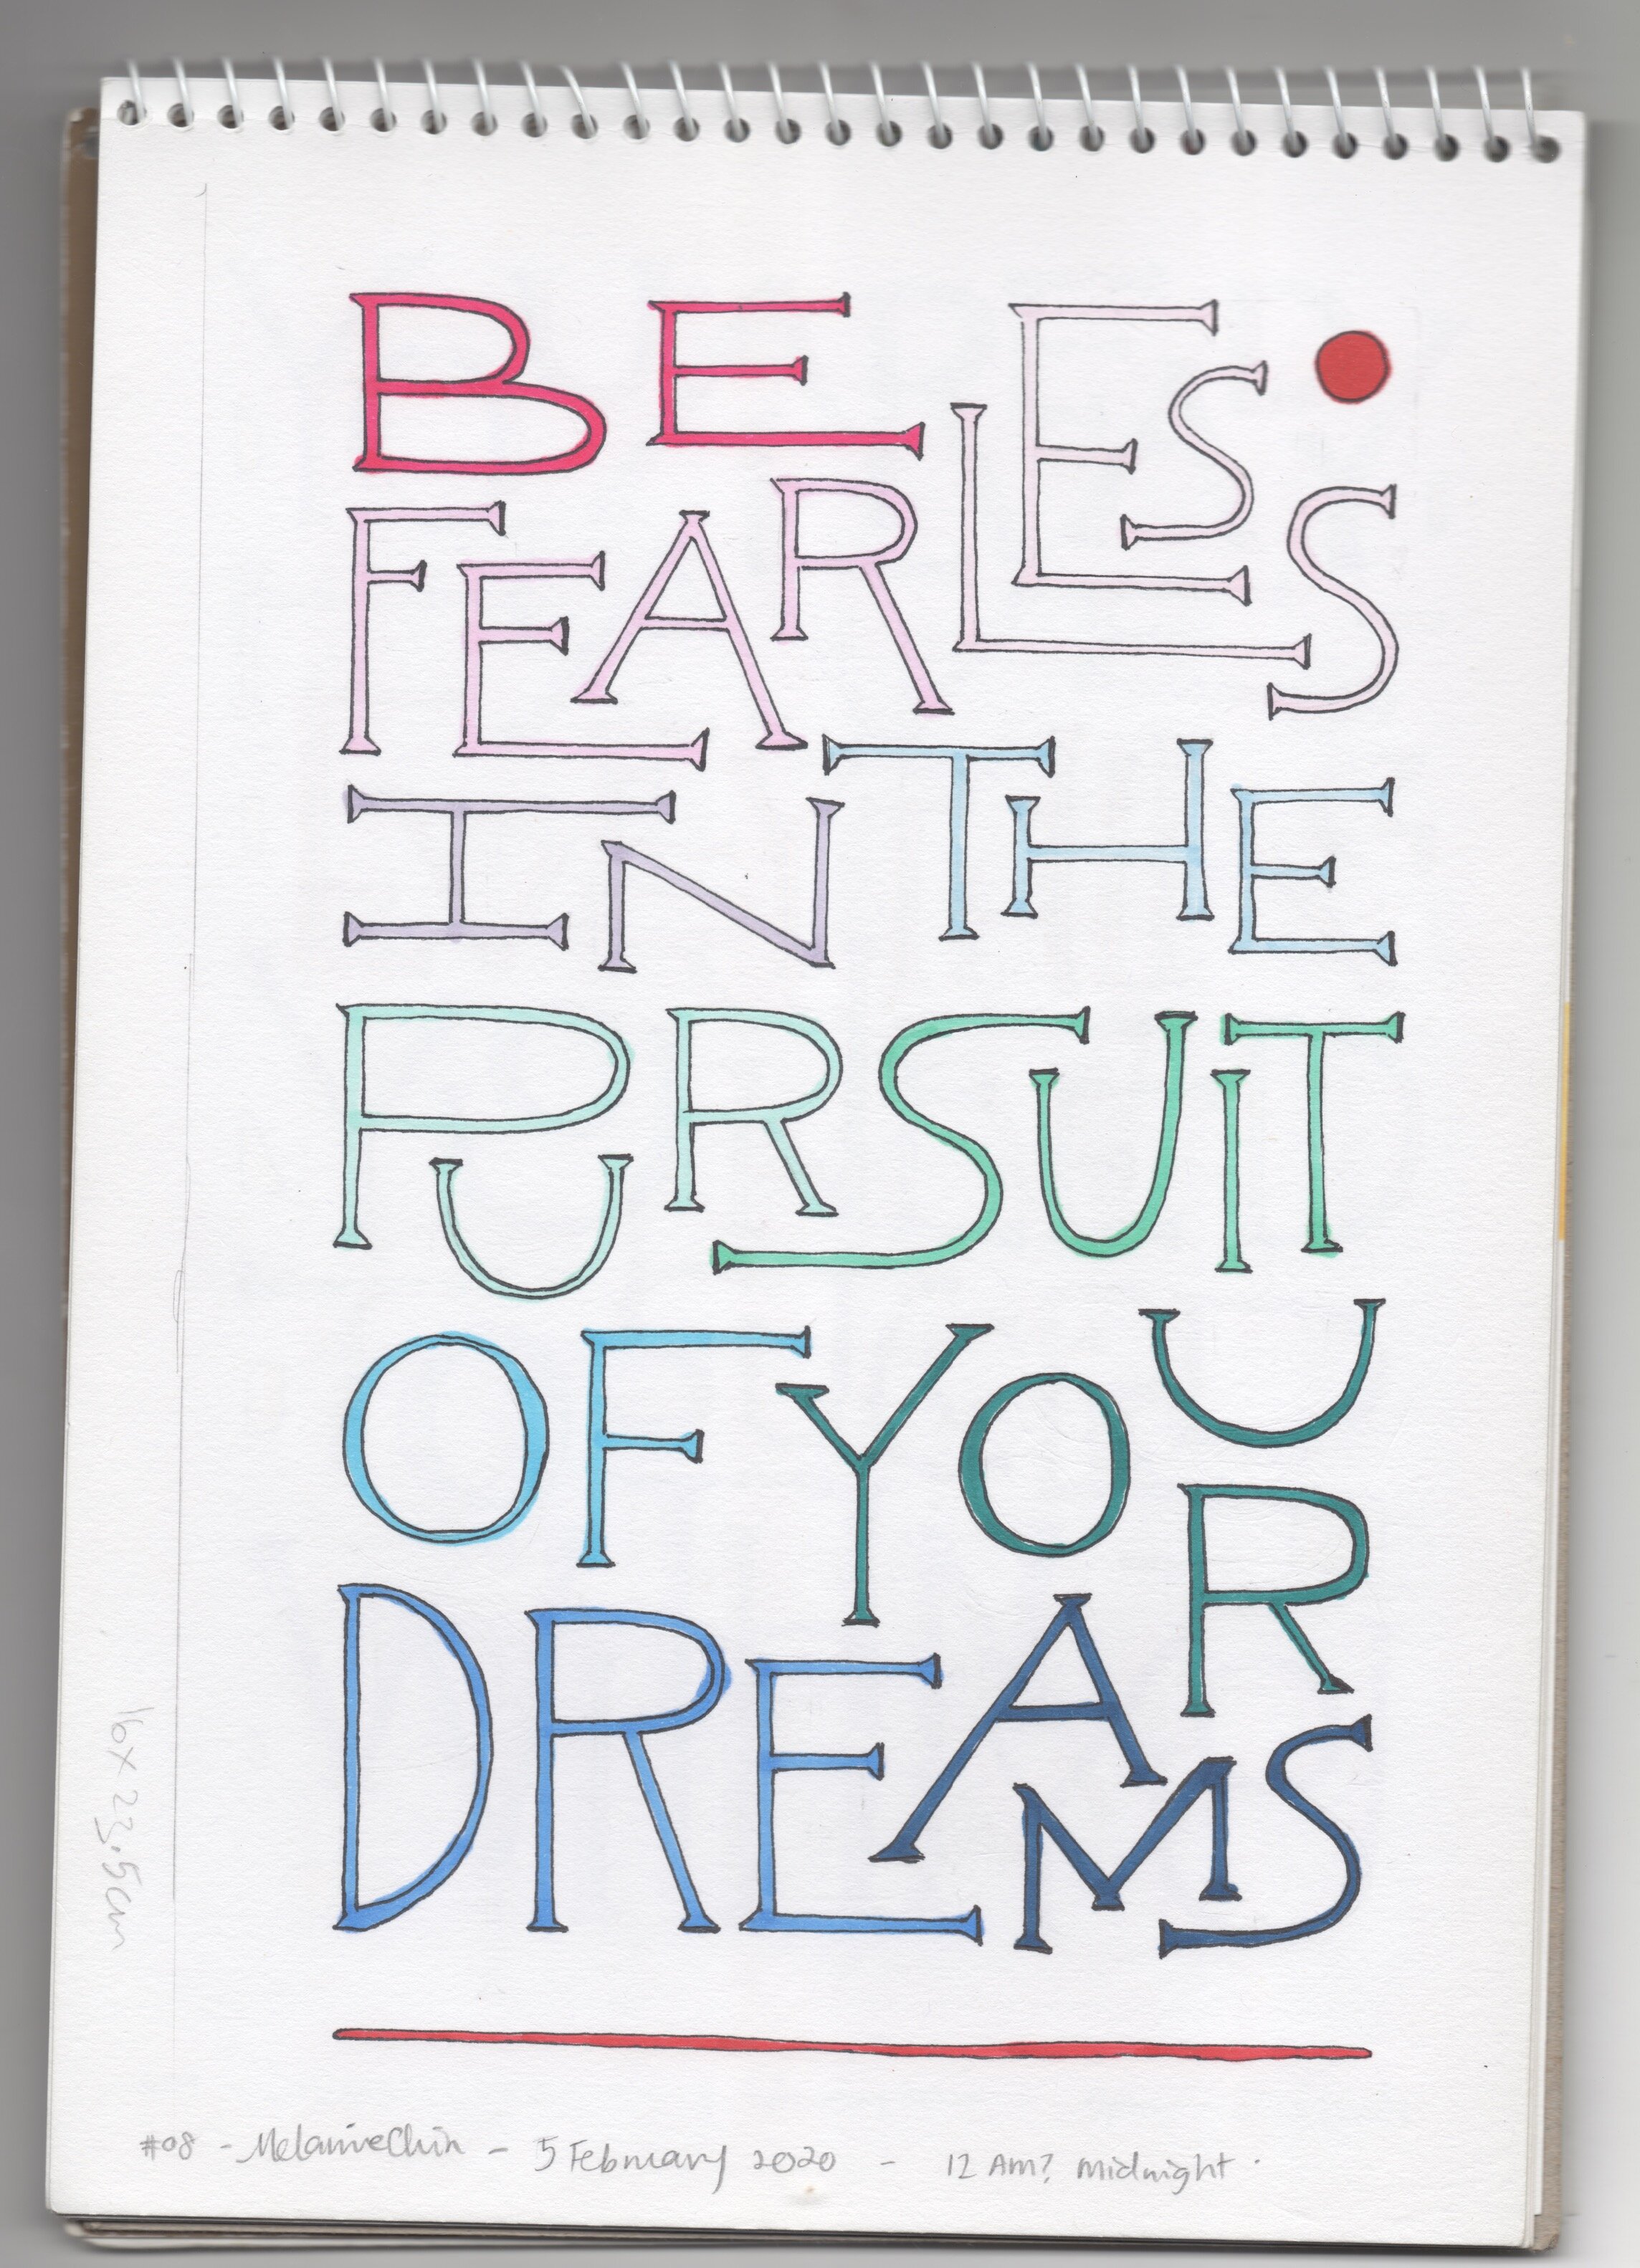 BE
FEARLESS
IN THE
PURSUIT
OF YOUR
DREAMS
16 x 23.5cm
#08 - Melanie Chin - 5 February 2020 - 12 AM? Midnight.